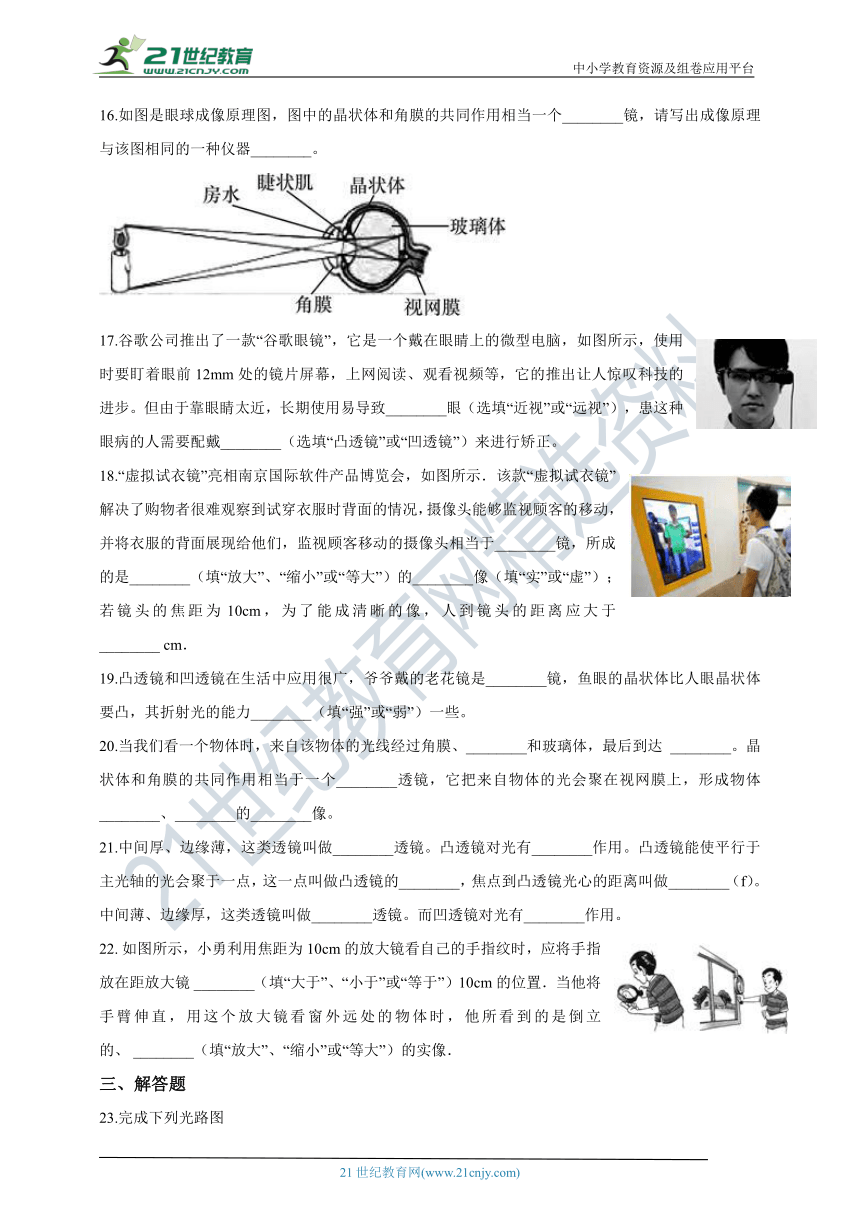 21世纪教育
WWW.21CNJY.COM
中小学教育资源及组卷应用平台
16.如图是眼球成像原理图，图中的晶状体和角膜的共同作用相当一个________镜，请写出成像原理
与该图相同的一种仪器________。
房水
睫状肌
晶状体
玻璃体
角膜
视网膜
17.谷歌公司推出了一款“谷歌眼镜”，它是一个戴在眼睛上的微型电脑，如图所示，使用
时要盯着眼前12mm处的镜片屏幕，上网阅读、观看视频等，它的推出让人惊叹科技的
进步。但由于靠眼睛太近，长期使用易导致________眼（选填“近视”或“远视”），患这种
眼病的人需要配戴________（选填“凸透镜”或“凹透镜”）来进行矫正。
18.“虚拟试衣镜”亮相南京国际软件产品博览会，如图所示．该款“虚拟试衣镜”
解决了购物者很难观察到试穿衣服时背面的情况，摄像头能够监视顾客的移动，
并将衣服的背面展现给他们，监视顾客移动的摄像头相当于________镜，所成
的是________（填“放大”、“缩小”或“等大”）的________像（填“实”或“虚”）；
若镜头的焦距为10cm，为了能成清晰的像，人到镜头的距离应大于
________ cm．
19.凸透镜和凹透镜在生活中应用很广，爷爷戴的老花镜是________镜，鱼眼的晶状体比人眼晶状体
要凸，其折射光的能力________（填“强”或“弱”）一些。
20.当我们看一个物体时，来自该物体的光线经过角膜、________和玻璃体，最后到达 ________。晶
状体和角膜的共同作用相当于一个________透镜，它把来自物体的光会聚在视网膜上，形成物体
________、________的________像。
21.中间厚、边缘薄，这类透镜叫做________透镜。凸透镜对光有________作用。凸透镜能使平行于
主光轴的光会聚于一点，这一点叫做凸透镜的________，焦点到凸透镜光心的距离叫做________（f）。
中间薄、边缘厚，这类透镜叫做________透镜。而凹透镜对光有________作用。
22. 如图所示，小勇利用焦距为10cm的放大镜看自己的手指纹时，应将手指
放在距放大镜 ________（填“大于”、“小于”或“等于”）10cm的位置．当他将
手臂伸直，用这个放大镜看窗外远处的物体时，他所看到的是倒立
的、 ________（填“放大”、“缩小”或“等大”）的实像．
三、解答题
23.完成下列光路图
21世纪教育网精选资料
21世纪教育网(www.21cnjy.com)